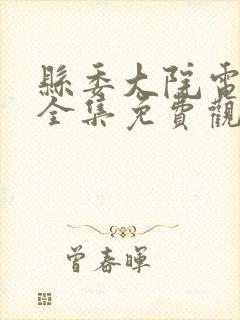 縣委大院電
全集免費觀
曾春暉